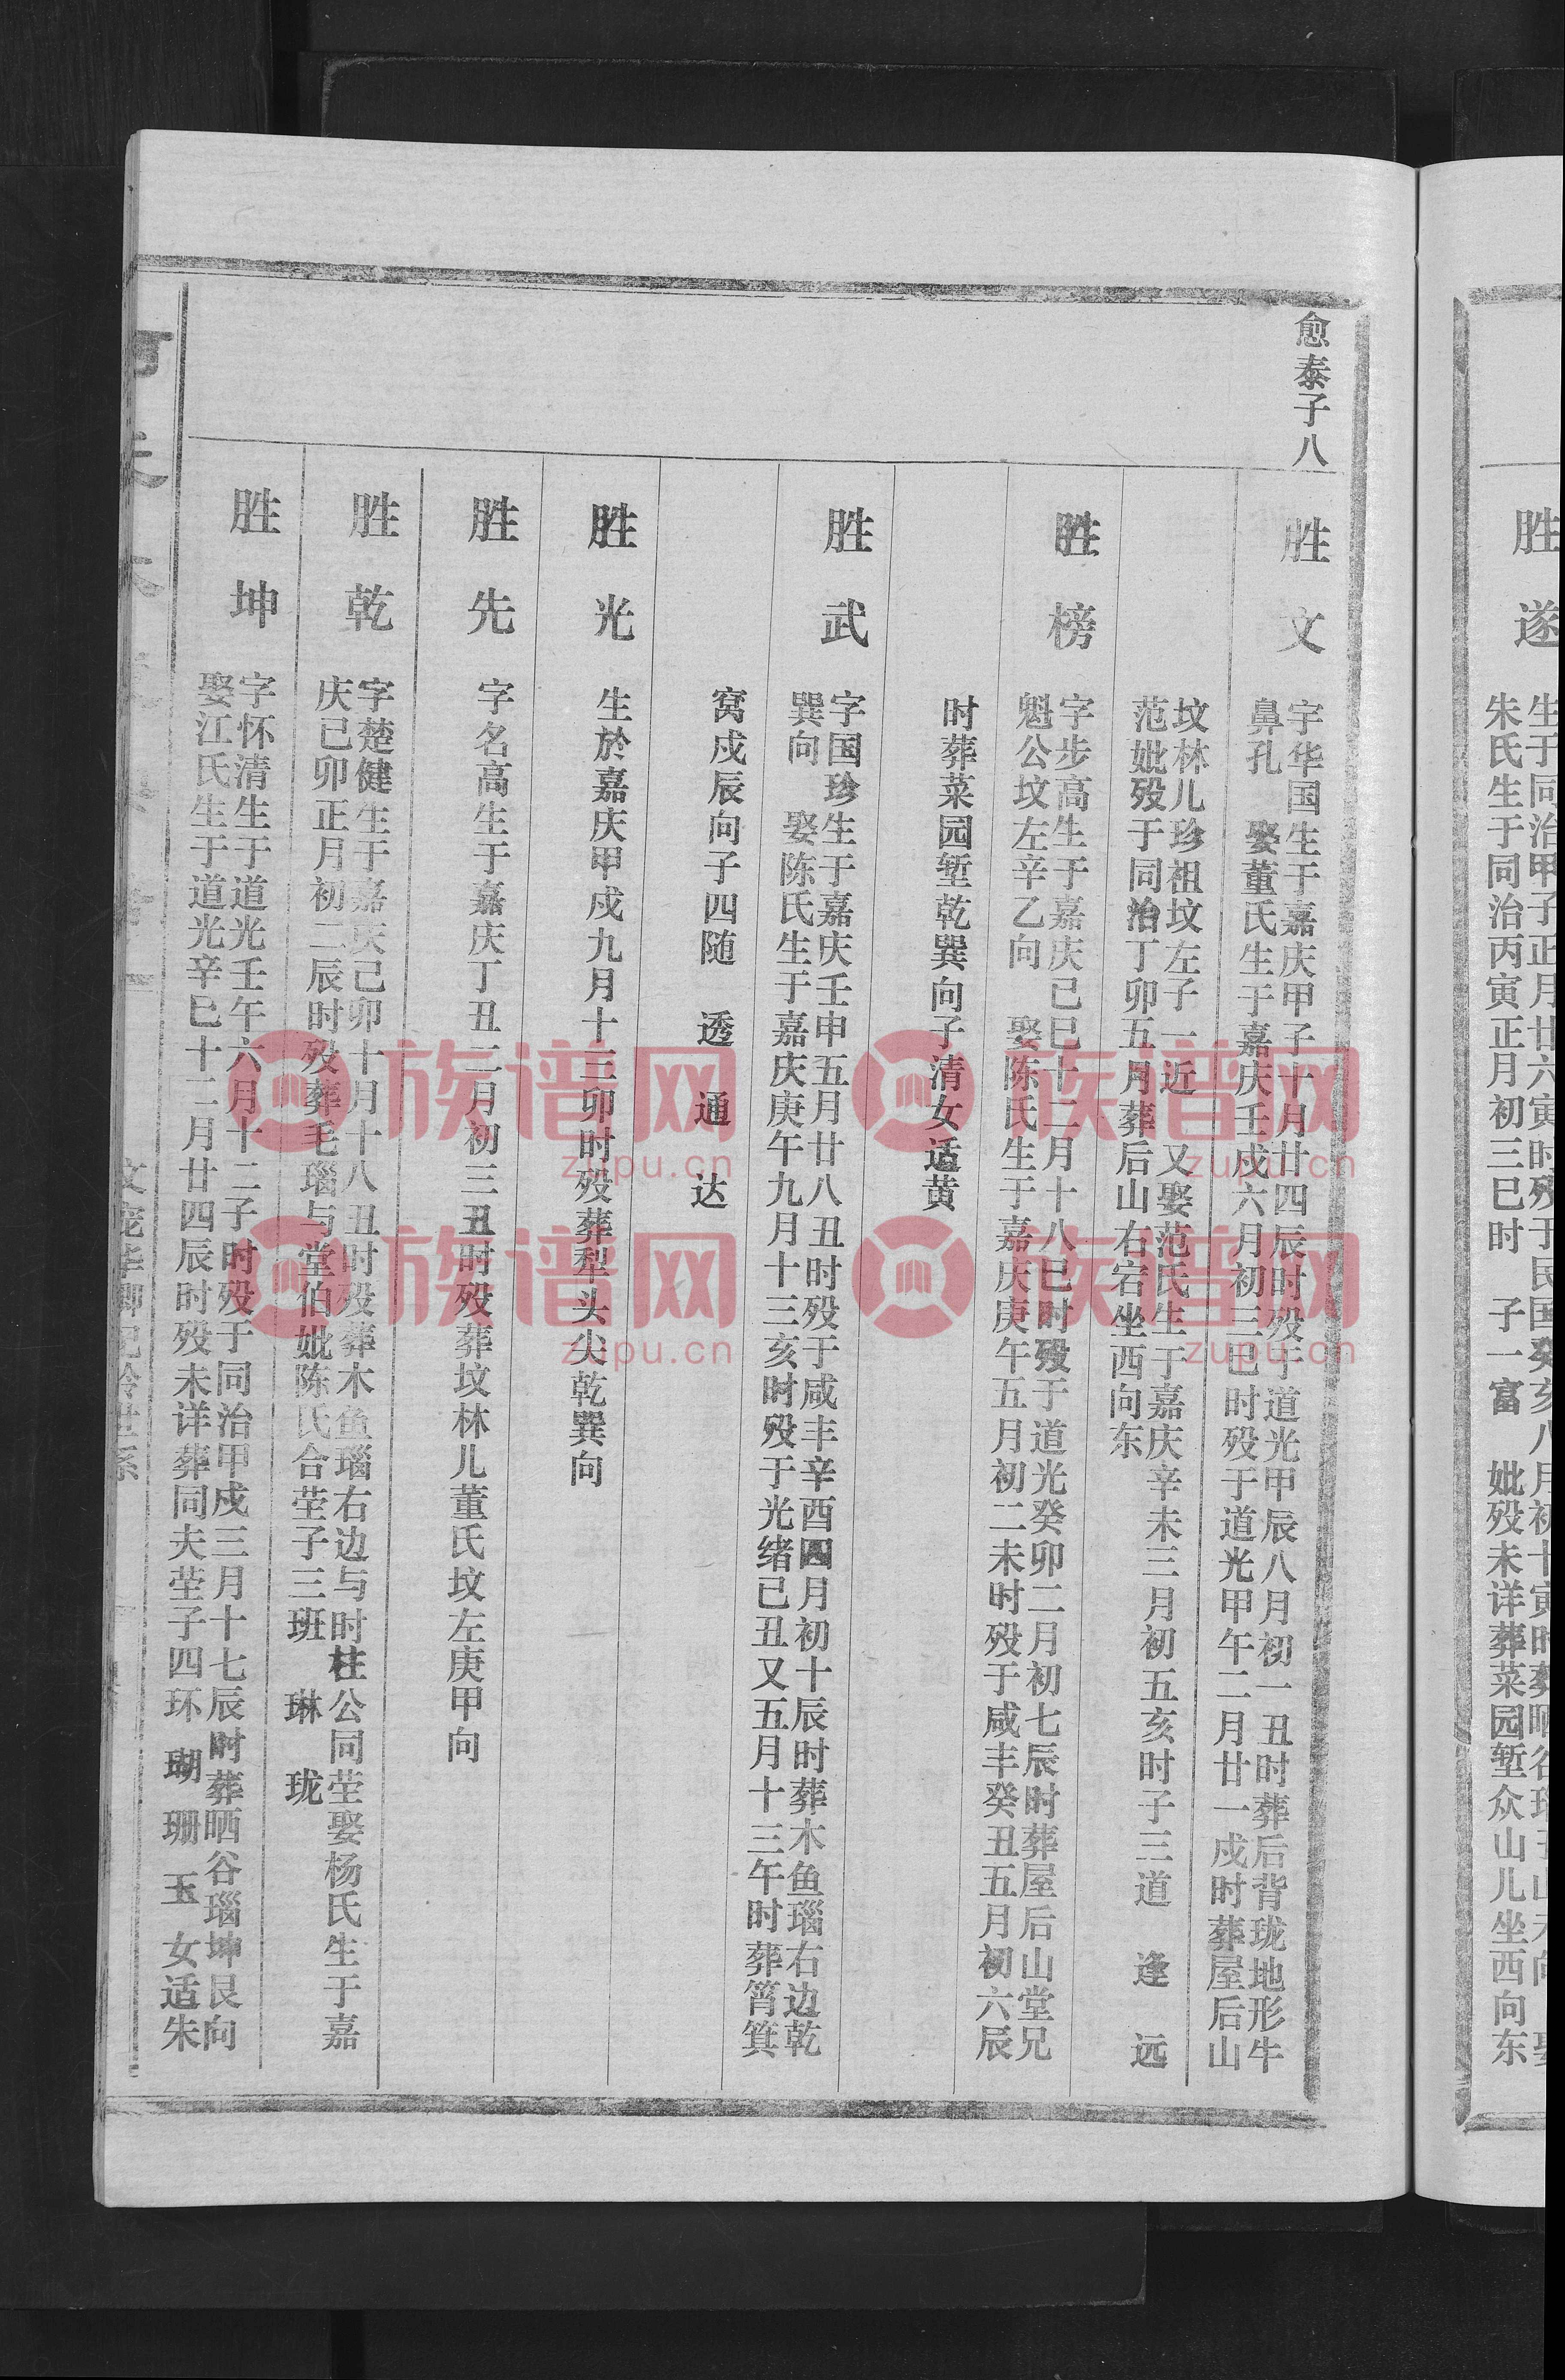 胜遂
生于同治甲子正月廿六寅时殁于民国癸亥八月初十寅时葬晒谷
朱氏生于同治丙寅正月初三巳时 子一富 妣殁未详葬菜园堑众山儿坐西向东
愈泰子八
胜文
字华国生于嘉庆甲子十月廿四辰时殁于道光甲辰八月初一丑时葬后背珑地形牛
鼻孔 娶董氏生于嘉庆壬戌六月初三巳时殁于道光甲午二月廿一戌时葬屋后山
坟林儿珍祖坟左子一近 又娶范氏生于嘉庆辛未三月初五亥时子三道 逢 远
范妣殁于同治丁卯五月葬后山右宕坐西向东
胜榜
字步高生于嘉庆己巳十二月十八巳时殁于道光癸卯二月初七辰时葬屋后山堂兄
魁公坟左辛乙向 娶陈氏生于嘉庆庚午五月初二未时殁于咸丰癸丑五月初六辰
时葬菜园堑乾巽向子清女适黄
胜武
字国珍生于嘉庆壬申五月廿八丑时殁于咸丰辛酉四月初十辰时葬木鱼瑙右边乾
巽向 娶陈氏生于嘉庆庚午九月十三亥时殁于光绪己丑又五月十三午时葬筲箕
窝戍辰向子四随 透 通 达
胜光
生於嘉庆甲戍九月十三卯时殁葬犁头尖乾巽向
胜先
字名高生于嘉庆丁丑二月初三丑时殁葬坟林儿董氏坟左庚甲向
胜乾
字楚健生于嘉庆己卯十月十八丑时殁葬木鱼瑙右边与时柱公同茔娶杨氏生于嘉
庆己卯正月初二辰时殁葬毛瑙与堂伯妣陈氏合茔子三班 琳 珑
胜坤
字怀清生于道光壬午六月十二子时殁于同治甲戍三月十七辰时葬晒谷瑙坤艮向
娶江氏生于道光辛巳十二月廿四辰时殁未详葬同夫茔子四环 瑚 珊 玉 女适朱
族谱网
zupu.cn
族谱网
zupu.cn
族谱网
zupu.cn
族谱网
zupu.cn